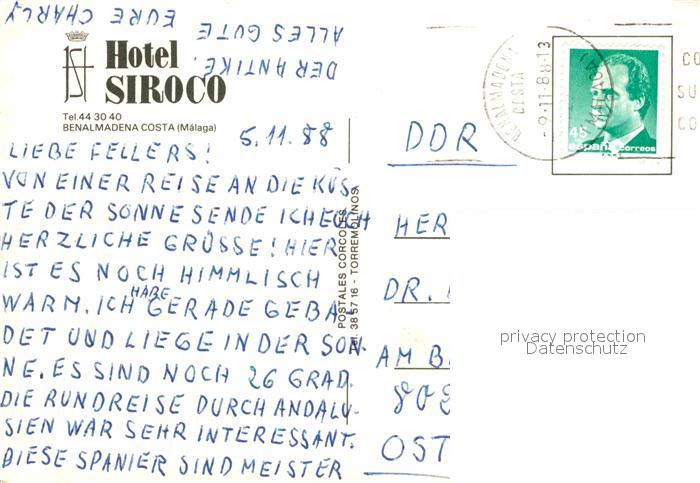 Hotel
SIROCO
Tel. 44 30 40
BENALMADENA COSTA (Málaga)
5.11.88
LIEBE FELLERS!
VON EINER REISE AN DIE KÜS-
TE DER SONNE SENDE ICH EUCH
HERZLICHE GRÜSSE! HIER
IST ES NOCH HIMMLISCH
WARM. ICH HABE GERADE GEBA-
DET UND LIEGE IN DER SON-
NE. ES SIND NOCH 26 GRAD.
DIE RUNDREISE DURCH ANDALU-
SIEN WAR SEHR INTERESSANT.
DIESE SPANIER SIND MEISTER
DER ANTIKE.
ALLES GUTE
EURE CHARLY
POSTALES CORCOLES
38 57 16 - TORREMOLINOS
BENALMADENA
COSTA
-9-11-88-13
(MALAGA)
45
españa correos
CO
SU
CO
DDR
HER
DR.
AM B
OST
privacy protection
Datenschutz